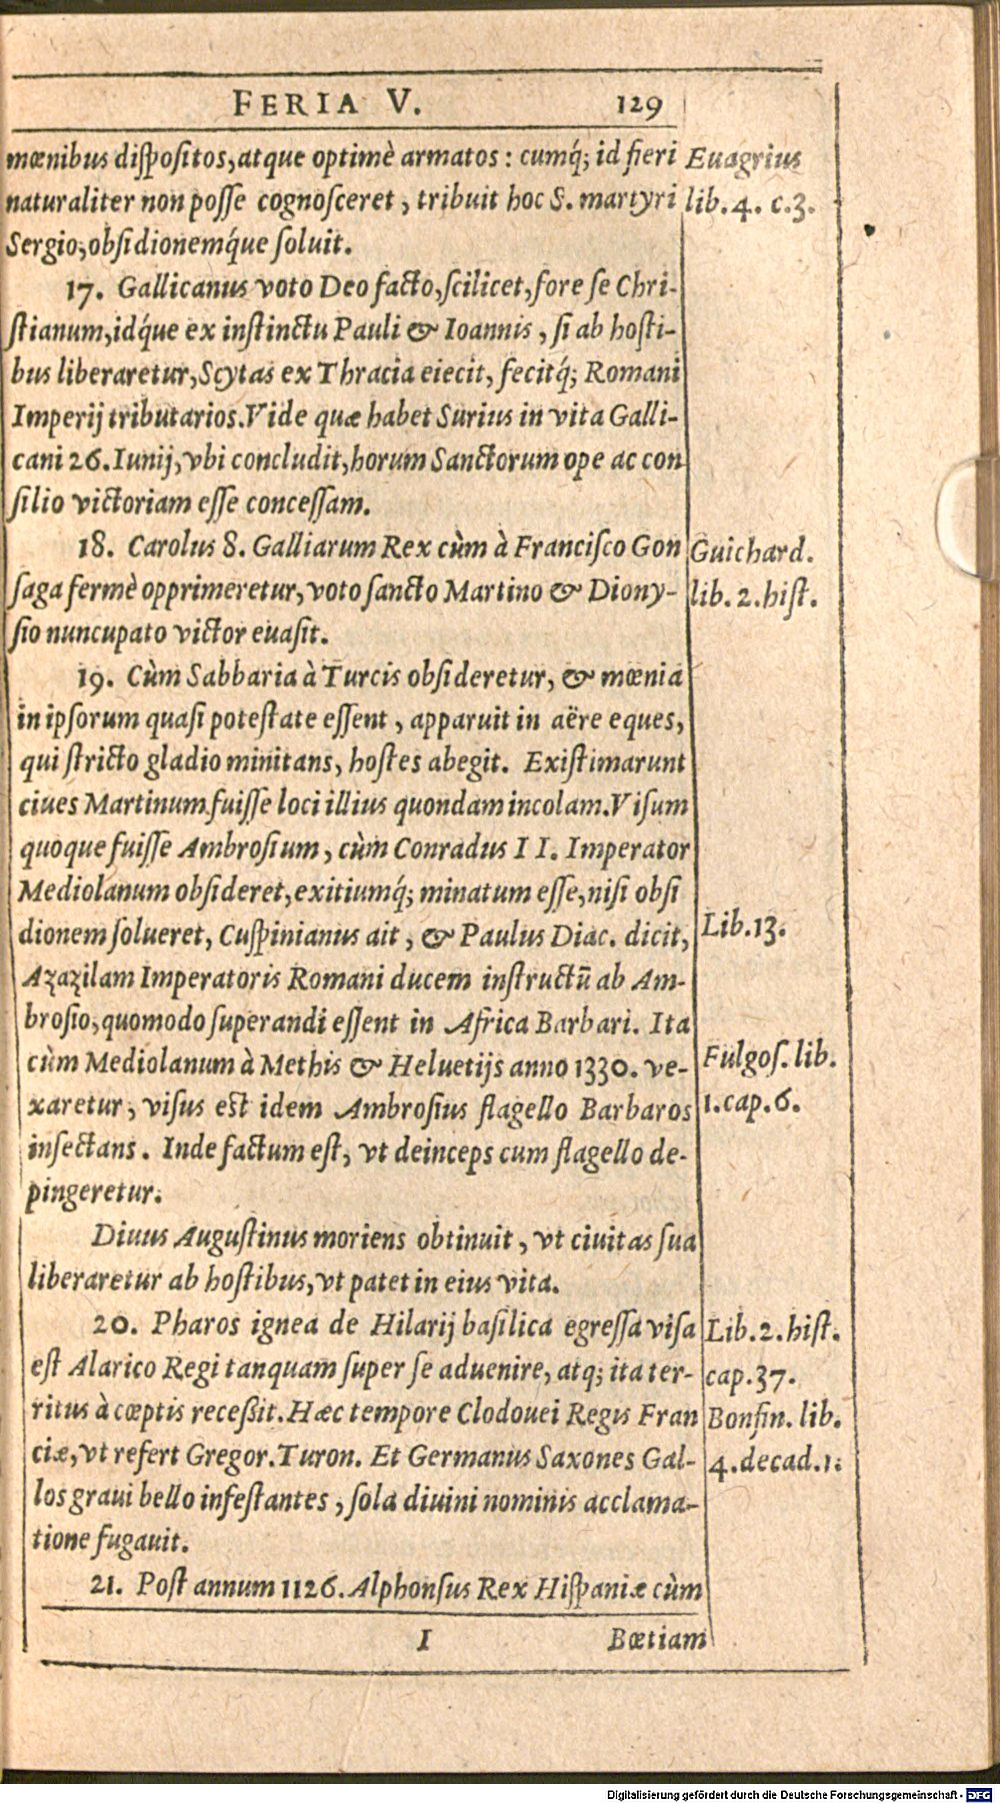 FERIA V. 129
mœnibus dispositos, atque optimè armatos: cumq́; id fieri
naturaliter non posse cognosceret, tribuit hoc S. martyri
Sergio, obsidionemq́ue soluit.
Euagrius
lib. 4. c. 3.
17. Gallicanus voto Deo facto, scilicet, fore se Chri-
stianum, idq́ue ex instinctu Pauli & Ioannis, si ab hosti-
bus liberaretur, Scytas ex Thracia eiecit, fecitq́; Romani
Imperij tributarios. Vide quæ habet Surius in vita Galli-
cani 26. Iunij, vbi concludit, horum Sanctorum ope ac con
silio victoriam esse concessam.
18. Carolus 8. Galliarum Rex cùm à Francisco Gon
saga fermè opprimeretur, voto sancto Martino & Diony-
sio nuncupato victor euasit.
Guichard.
lib. 2. hist.
19. Cùm Sabbaria à Turcis obsideretur, & mœnia
in ipsorum quasi potestate essent, apparuit in aëre eques,
qui stricto gladio minitans, hostes abegit. Existimarunt
ciues Martinum fuisse loci illius quondam incolam. Visum
quoque fuisse Ambrosium, cùm Conradus II. Imperator
Mediolanum obsideret, exitiumq́; minatum esse, nisi obsi
dionem solueret, Cuspinianus ait, & Paulus Diac. dicit,
Azazilam Imperatoris Romani ducem instructū ab Am-
brosio, quomodo superandi essent in Africa Barbari. Ita
cùm Mediolanum à Methis & Heluetijs anno 1330. ve-
xaretur, visus est idem Ambrosius flagello Barbaros
insectans. Inde factum est, vt deinceps cum flagello de-
pingeretur.
Lib. 13.
Fulgos. lib.
1. cap. 6.
Diuus Augustinus moriens obtinuit, vt ciuitas sua
liberaretur ab hostibus, vt patet in eius vita.
20. Pharos ignea de Hilarij basilica egressa visa
est Alarico Regi tanquam super se aduenire, atq; ita ter-
ritus à cœptis recessit. Hæc tempore Clodouei Regis Fran
ciæ, vt refert Gregor. Turon. Et Germanus Saxones Gal-
los graui bello infestantes, sola diuini nominis acclama-
tione fugauit.
Lib. 2. hist.
cap. 37.
Bonfin. lib.
4. decad. 1.
21. Post annum 1126. Alphonsus Rex Hispaniæ cùm
I Bœtiam
Digitalisierung gefördert durch die Deutsche Forschungsgemeinschaft - DFG